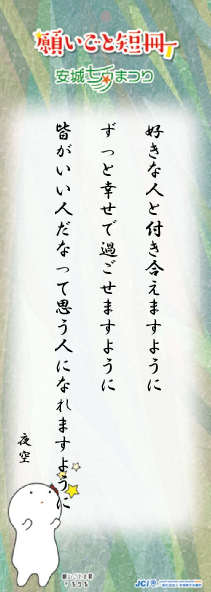 願いごと短冊
安城七夕まつり
好きな人と付き合えますように
ずっと幸せで過ごせますように
皆がいい人だなって思う人になれますように
夜空
JCI